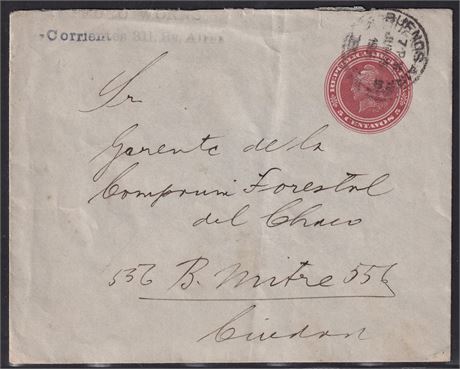 WORMS
Corrientes 311, Bs. Aires
BUENOS
REPUBLICA ARGENTINA
5 CENTAVOS 5
Sr
Gerente de la
Compania Forestal
del Chaco
556 B. Mitre 556
Ciudad